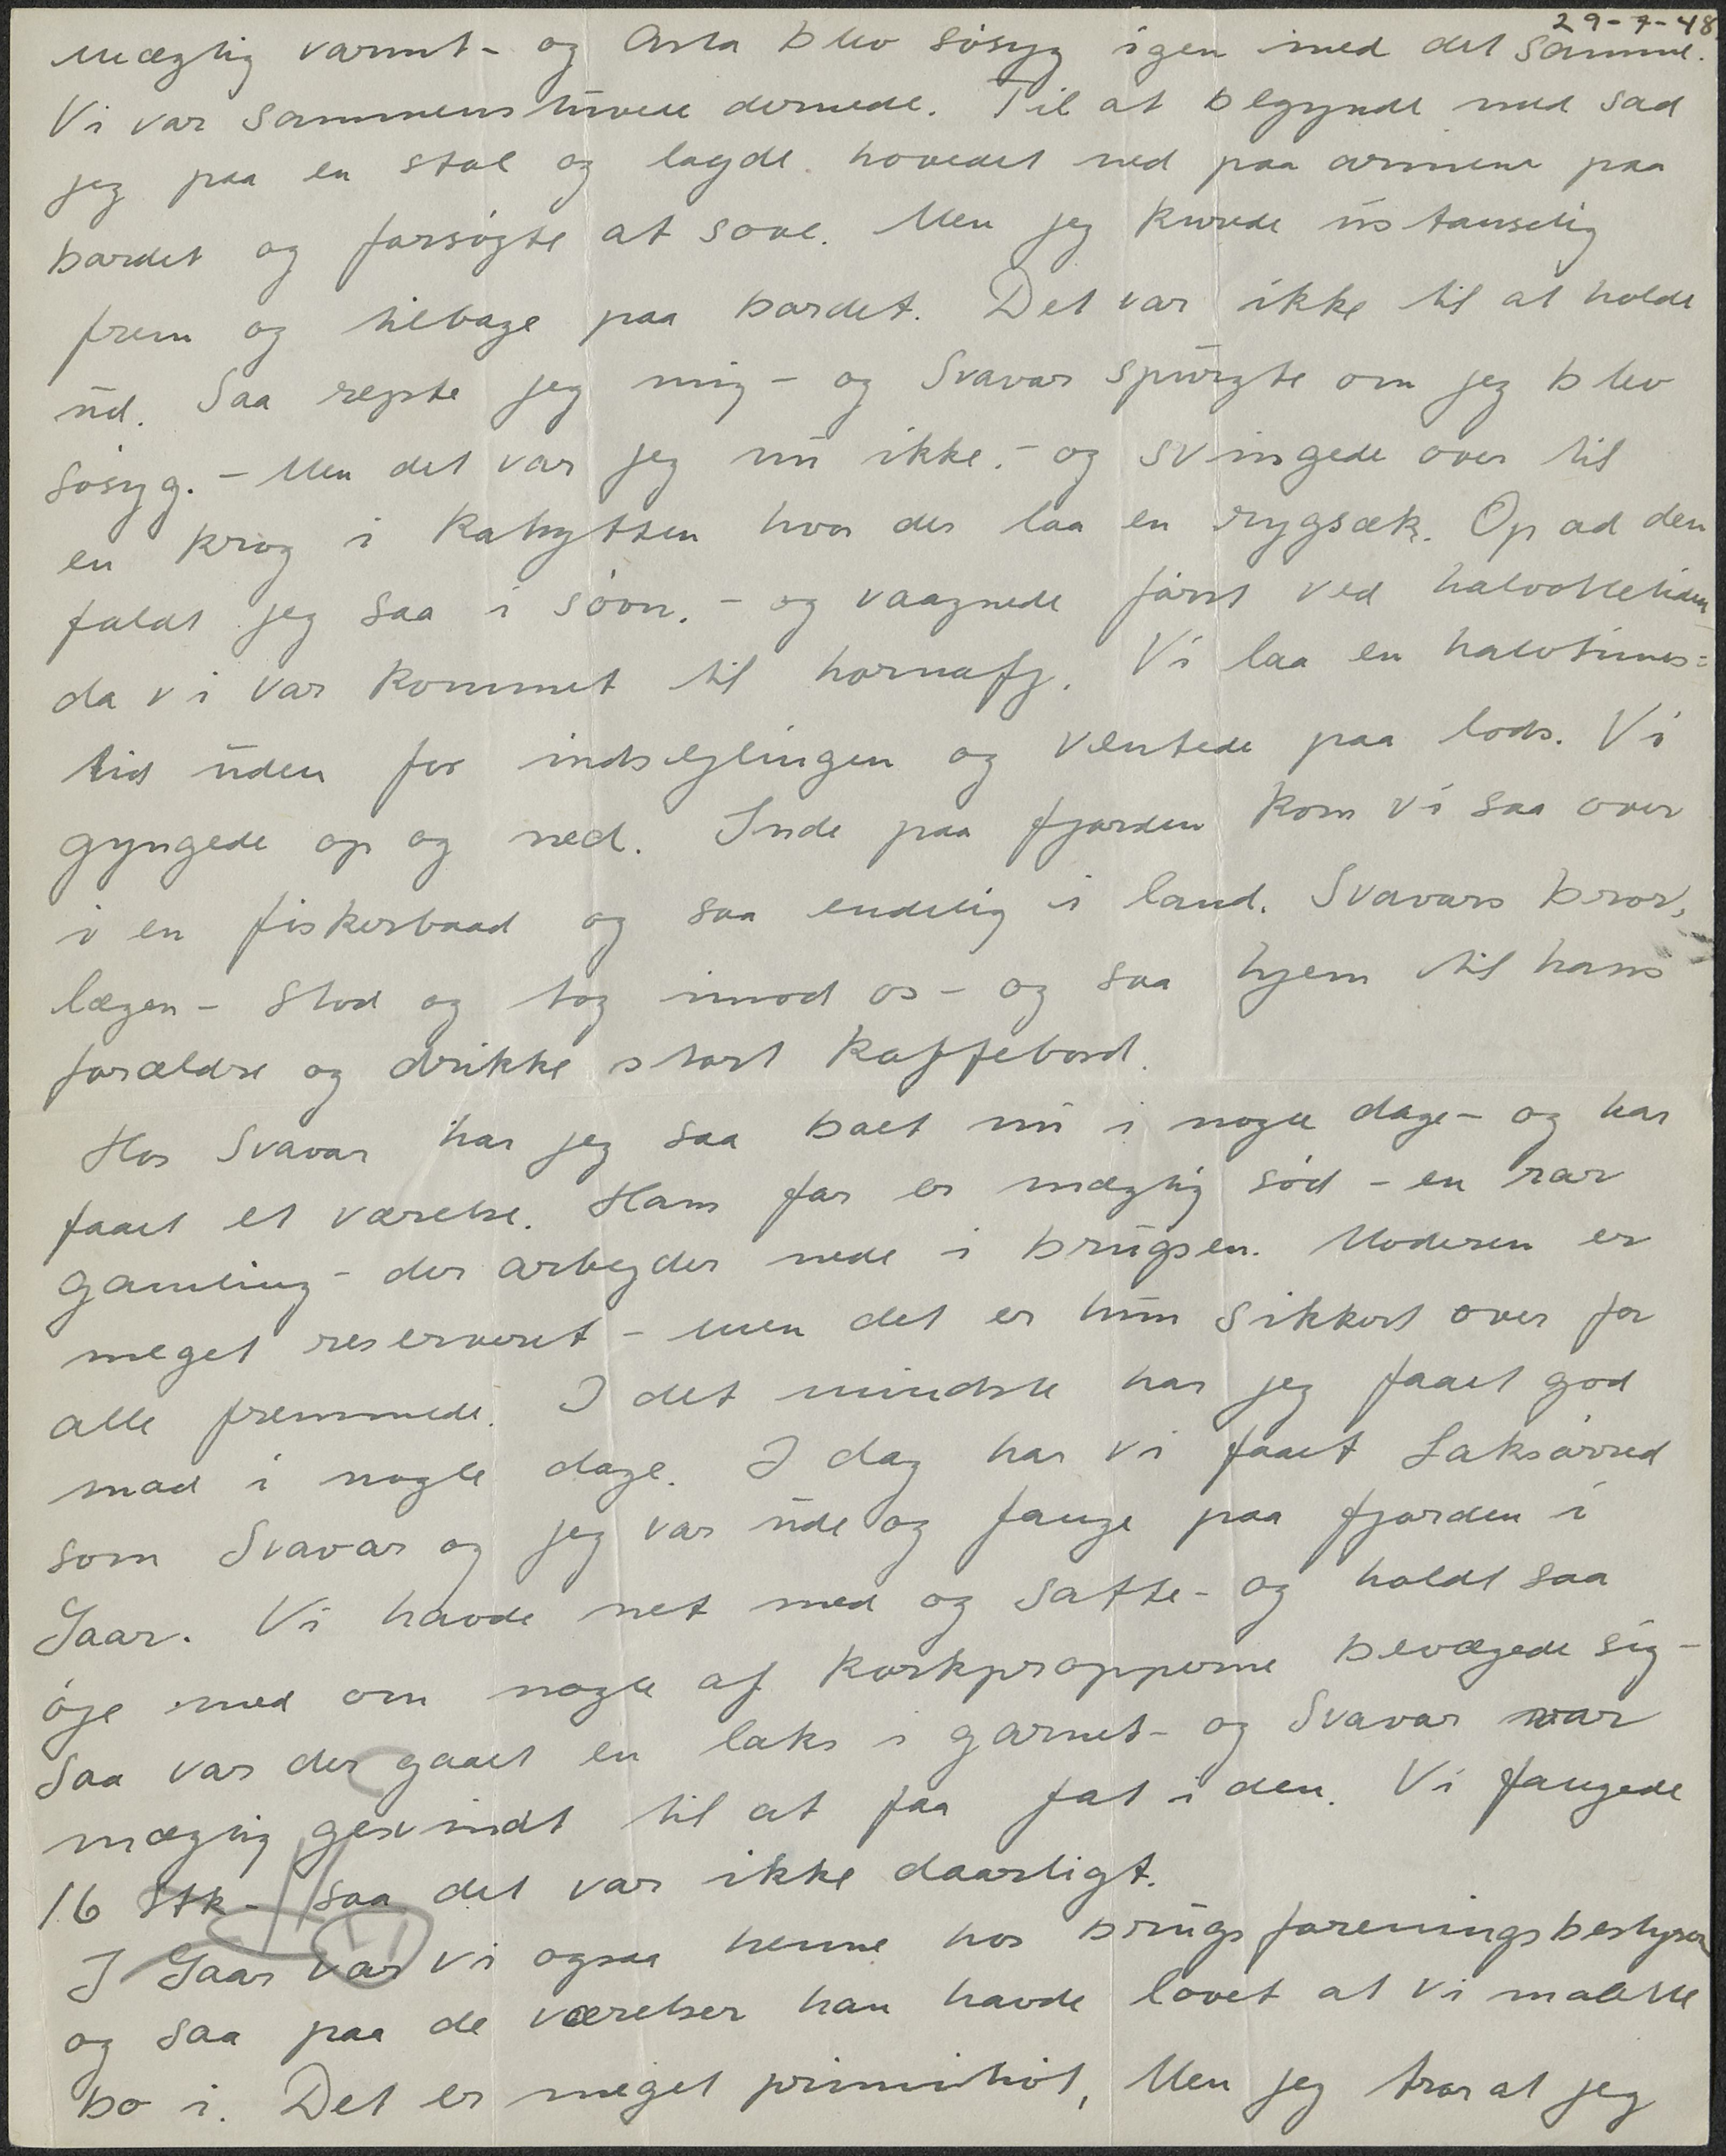 29-7-48
mægtig varmt - og Asta blev søsyg igen med det samme.
Vi var sammenstuvede dernede. Til at begynde med sad
jeg paa en stol og lagde hovedet ned paa armene paa
bordet og forsøgte at sove. Men jeg kurede ustanselig
frem og tilbage paa bordet. Det var ikke til at holde
ud. Saa rejste jeg mig - og Svavar spurgte om jeg blev
søsyg. - Men det var jeg nu ikke. - og svingede over til
en krog i kahytten hvor der laa en rygsæk. Op ad den
faldt jeg saa i søvn. - og vaagnede først ved halvottetiden
da vi var kommet til hornafj. Vi laa en halvtimes=
tid uden for indsejlingen og ventede paa lods. Vi
gyngede op og ned. Inde paa fjorden kom vi saa over
i en fiskerbaad og saa endelig i land. Svavars bror,
lægen - stod og tog imod os - og saa hjem til hans
forældre og drikke stort kaffebord.
Hos Svavar har jeg saa boet nu i nogle dage - og har
faaet et værelse. Hans far er mægtig sød - en rar
gamling - der arbejder nede i brugsen. Moderen er
meget reserveret - men det er hun sikkert over for
alle fremmede. I det mindste har jeg faaet god
mad i nogle dage. I dag har vi faaet Laksørred
som Svavar og jeg var ude og fange paa fjorden i
Gaar. Vi havde net med og satte - og holdt saa
øje med om nogle af korkpropperne bevægede sig -
saa var der gaaet en laks i garnet - og Svavar var
mægtig gesvindt til at faa fat i den. Vi fangede
16 stk - saa det var ikke daarligt.
I Gaar var vi ogsaa henne hos brugsforeningsbestyrer
og saa paa de værelser han havde lovet at vi maatte
bo i. Det er meget primitivt, Men jeg tror at jeg